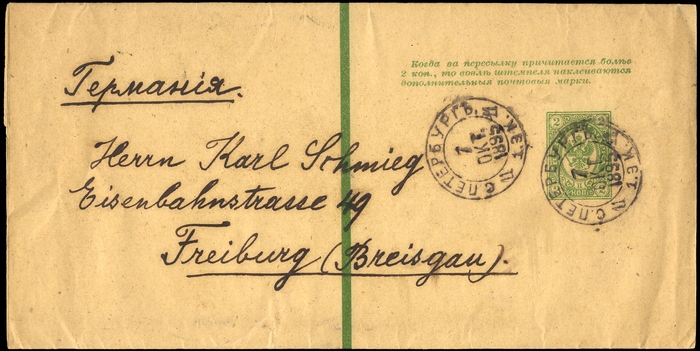 Когда за пересылку причитается болѣе
2 коп., то возлѣ штемпеля наклеиваются
дополнительныя почтовыя марки.
Германія.
Herrn Karl Schmieg
Eisenbahnstrasse 49
Freiburg (Breisgau).
С.ПЕТЕРБУРГЪ
7
ОКТ
1895
2
2
КОП
С.ПЕТЕРБУРГЪ
7
1895